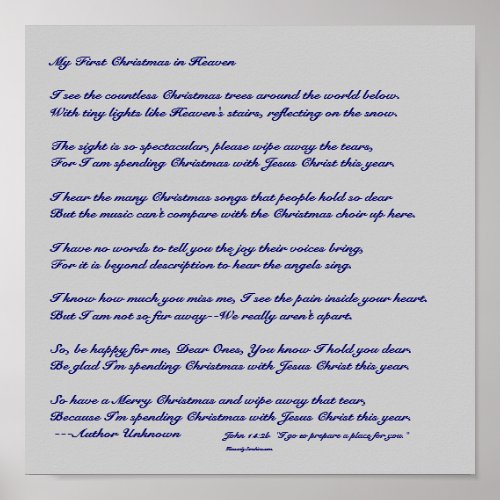 My First Christmas in Heaven
I see the countless Christmas trees around the world below.
With tiny lights like Heaven's stairs, reflecting on the snow.
The sight is so spectacular, please wipe away the tears,
For I am spending Christmas with Jesus Christ this year.
I hear the many Christmas songs that people hold so dear
But the music can't compare with the Christmas choir up here.
I have no words to tell you the joy their voices bring,
For it is beyond description to hear the angels sing.
I know how much you miss me, I see the pain inside your heart.
But I am not so far away--We really aren't apart.
So, be happy for me, Dear Ones, You know I hold you dear.
Be glad I'm spending Christmas with Jesus Christ this year.
So have a Merry Christmas and wipe away that tear,
Because I'm spending Christmas with Jesus Christ this year.
---Author Unknown John 14:2b "I go to prepare a place for you."